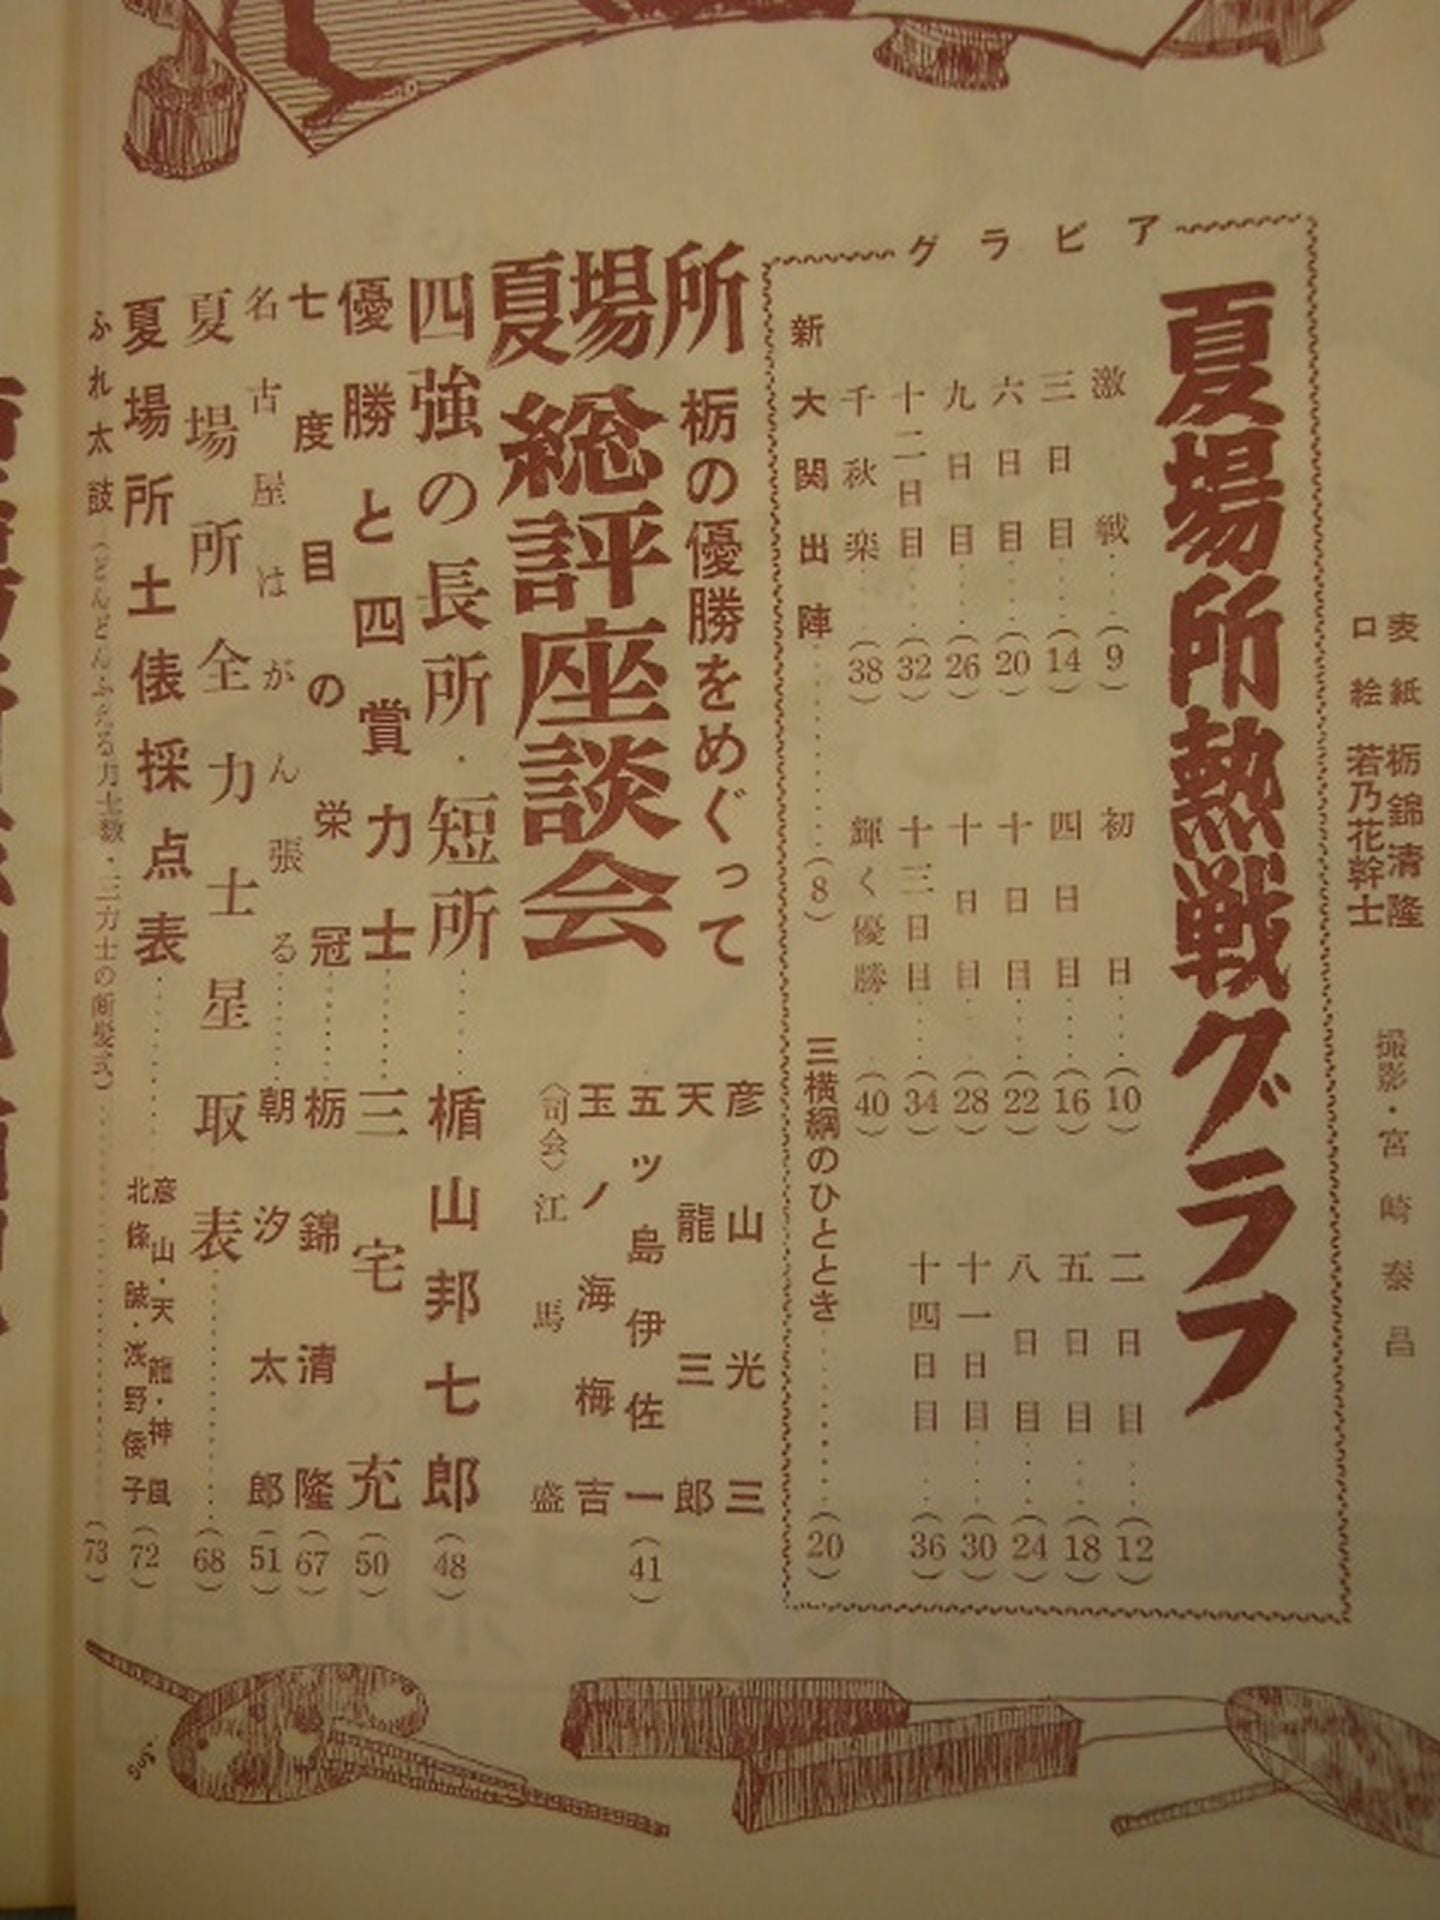 表紙 栃錦清隆
口絵 若乃花幹士
撮影・宮崎泰昌
グラビア
夏場所熱戦グラフ
激戦……(9)
初日……(10)
二日目……(12)
三日目……(14)
四日目……(16)
五日目……(18)
六日目……(20)
十日目……(22)
八日目……(24)
九日目……(26)
十日目……(28)
十一日目……(30)
十二日目……(32)
十三日目……(34)
十四日目……(36)
千秋楽……(38)
輝く優勝……(40)
新大関出陣……(8)
三横綱のひととき……(20)
夏場所
栃の優勝をめぐって
総評座談会
彦山光三
天龍三郎
五ツ島伊佐一(41)
玉ノ海梅吉
〈司会〉江馬盛
四強の長所・短所……楯山邦七郎(48)
優勝と四賞力士……三宅充(50)
七度目の栄冠……栃錦清隆(67)
名古屋はがんばる……朝汐太郎(51)
夏場所全力士星取表……(68)
夏場所土俵採点表……彦山・天龍・神風
北條誠・浅野倭子(72)
ふれ太鼓(どんどんふえる力士数・三力士の断髪式)……(73)